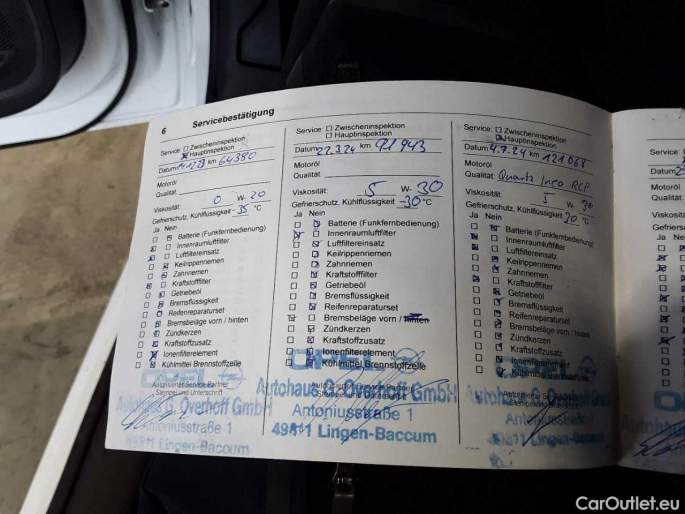 6 Servicebestätigung
Service: Zwischeninspektion
Hauptinspektion
Datum km 64380
Motoröl
Qualität:
Viskosität: 0 W- 20
Gefrierschutz, Kühlflüssigkeit -35 °C
Ja Nein
Batterie (Funkfernbedienung)
Innenraumluftfilter
Luftfiltereinsatz
Keilrippenriemen
Zahnriemen
Kraftstofffilter
Getriebeöl
Bremsflüssigkeit
Reifenreparaturset
Bremsbeläge vorn / hinten
Zündkerzen
Kraftstoffzusatz
Ionenfilterelement
Kühlmittel Brennstoffzelle
OPEL
Autorisierter Service Partner
Stempel und Unterschrift
Autohaus G. Overhoff GmbH
Antoniusstraße 1
49811 Lingen-Baccum
Service: Zwischeninspektion
Hauptinspektion
Datum 22.3.24 km 91943
Motoröl
Qualität:
Viskosität: 5 W- 30
Gefrierschutz, Kühlflüssigkeit -30 °C
Ja Nein
Batterie (Funkfernbedienung)
Innenraumluftfilter
Luftfiltereinsatz
Keilrippenriemen
Zahnriemen
Kraftstofffilter
Getriebeöl
Bremsflüssigkeit
Reifenreparaturset
Bremsbeläge vorn / hinten
Zündkerzen
Kraftstoffzusatz
Ionenfilterelement
Kühlmittel Brennstoffzelle
OPEL
Autohaus G. Overhoff GmbH
Antoniusstraße 1
49811 Lingen-Baccum
Service: Zwischeninspektion
Hauptinspektion
Datum 4.7.24 km 121068
Motoröl
Qualität: Quartz Ineo RCP
Viskosität: 5 W- 30
Gefrierschutz, Kühlflüssigkeit 20 °C
Ja Nein
Batterie (Funkfernbedienung)
Innenraumluftfilter
Luftfiltereinsatz
Keilrippenriemen
Zahnriemen
Kraftstofffilter
Getriebeöl
Bremsflüssigkeit
Reifenreparaturset
Bremsbeläge vorn / hinten
Zündkerzen
Kraftstoffzusatz
Ionenfilterelement
Kühlmittel Brennstoffzelle
OPEL
Autohaus G. Overhoff GmbH
Antoniusstraße 1
49811 Lingen-Baccum
Service
Datum
Motoröl
Qualität
Viskosität
Gefrierschu
Ja Nein
CarOutlet.eu